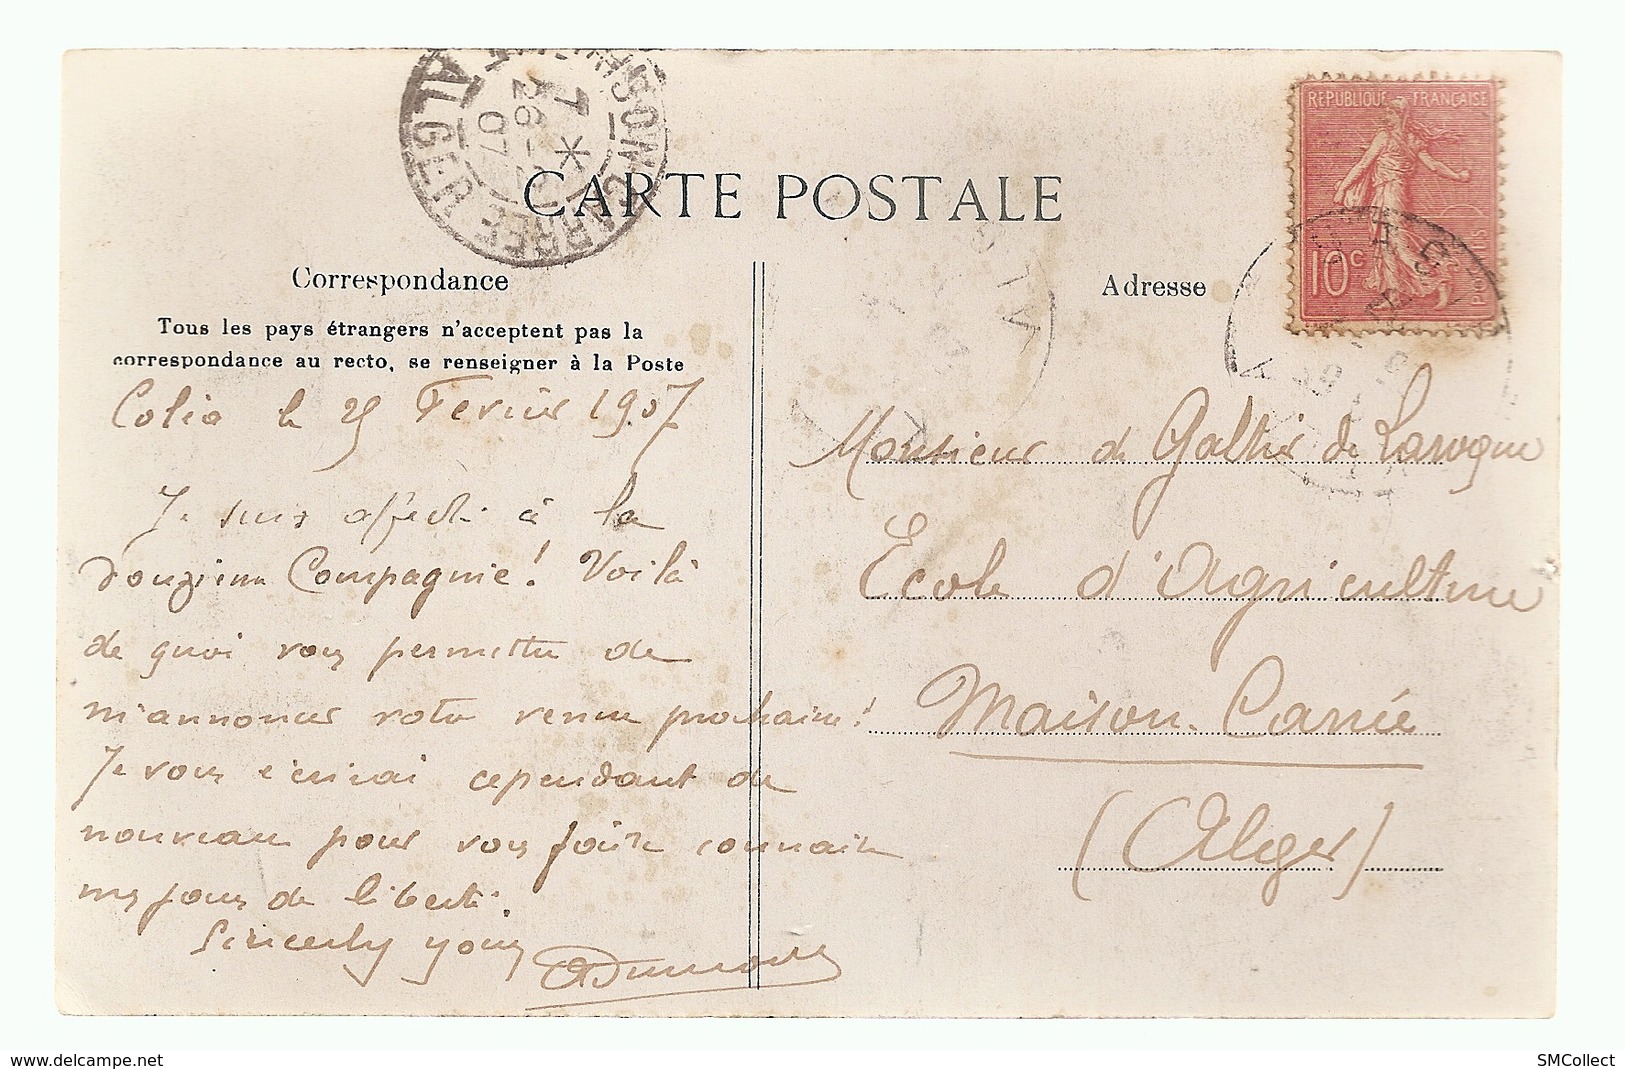 MAISON-CARREE
ALGER
7 *
26 - 2
07
CARTE POSTALE
REPUBLIQUE FRANÇAISE
10c
POSTES
Correspondance
Tous les pays étrangers n'acceptent pas la
correspondance au recto, se renseigner à la Poste
Coléa le 25 Fevrier 1907
Je suis affecté à la
douzième Compagnie! Voilà
de quoi vous permettre de
m'annoncer votre venue prochaine!
Je vous écrirai cependant de
nouveau pour vous faire connaître
mes jours de liberté.
Sincerly yours
Adresse
Monsieur de Galtier de Laroque
Ecole d'Agriculture
Maison-Carrée
(Alger)
www.delcampe.net
SMCollect